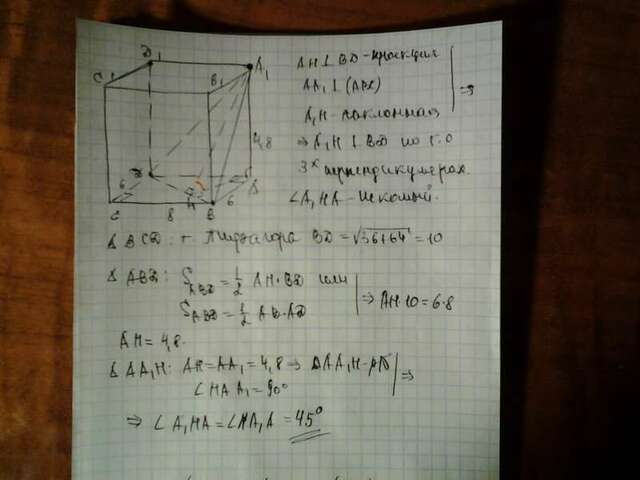 D₁
A₁
C₁
B₁
4,8
D
A
6
H
C
8
B
6
AH ⊥ BD - проекция
AA₁ ⊥ (ABC)
A₁H - наклонная
⇒ A₁H ⊥ BD по т. о
3ˣ перпендикулярах.
∠A₁HA - искомый.
⇒
Δ BCD: т Пифагора BD = √36+64 = 10
Δ ABD: S ABD = 1/2 AH · BD или
S ABD = 1/2 AB · AD
⇒ AH·10 = 6·8
AH = 4,8.
Δ AA₁H: AH = AA₁ = 4,8 ⇒ ΔAA₁H - р/б
∠HAA₁ = 90°
⇒
⇒ ∠A₁HA = ∠HA₁A = 45°